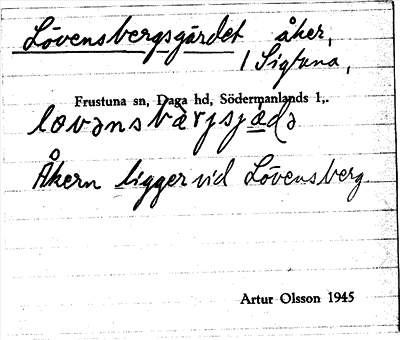 Lövensbergsgärdet åker,
/ Sigtuna,
Frustuna sn, Daga hd, Södermanlands l,.
Åkern ligger vid Lövensberg
Artur Olsson 1945